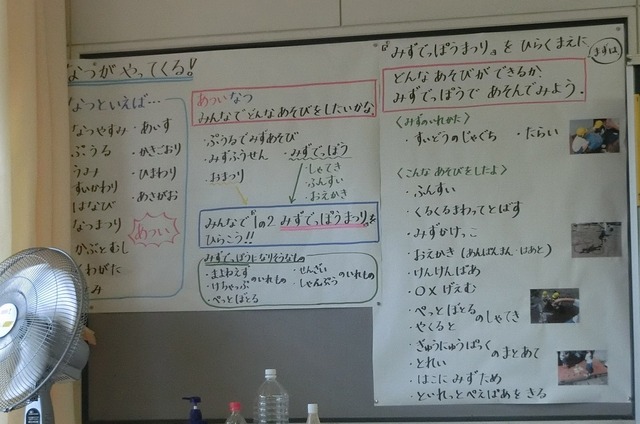 なつがやってくる!
なつといえば…
なつやすみ ・あいす
ぷうる ・かきごおり
うみ ・ひまわり
すいかわり ・あさがお
はなび
なつまつり
あつい
かぶとむし
わがた
み
あついなつ
みんなでどんなあそびをしたいかな。
・ぷうるでみずあそび
・みずふうせん ・みずでっぽう
・おまつり
・しゃてき
・ふんすい
・おえかき
みんなで『1の2 みずでっぽうまつり』を
ひらこう!!
みずでっぽうになりそうなもの
・まよねえず
・けちゃっぷ のいれもの
・ぺっとぼとる
・せんざい
・しゃんぷう のいれもの
『みずでっぽうまつり』を ひらくまえに
まずは
どんな あそびが できるか、
みずでっぽうで あそんでみよう。
〈みずのいれかた〉
・すいどうのじゃぐち ・たらい
〈こんな あそびを したよ〉
・ふんすい
・くるくるまわってとばす
・みずかけっこ
・おえかき(あんぱんまん・はあと)
・けんけんぱあ
・〇×げえむ
・ぺっとぼとる
・やくると のしゃてき
・ぎゅうにゅうぱっく
・とれい のまとあて
・はこに みずため
・といれっとぺえぱあを きる